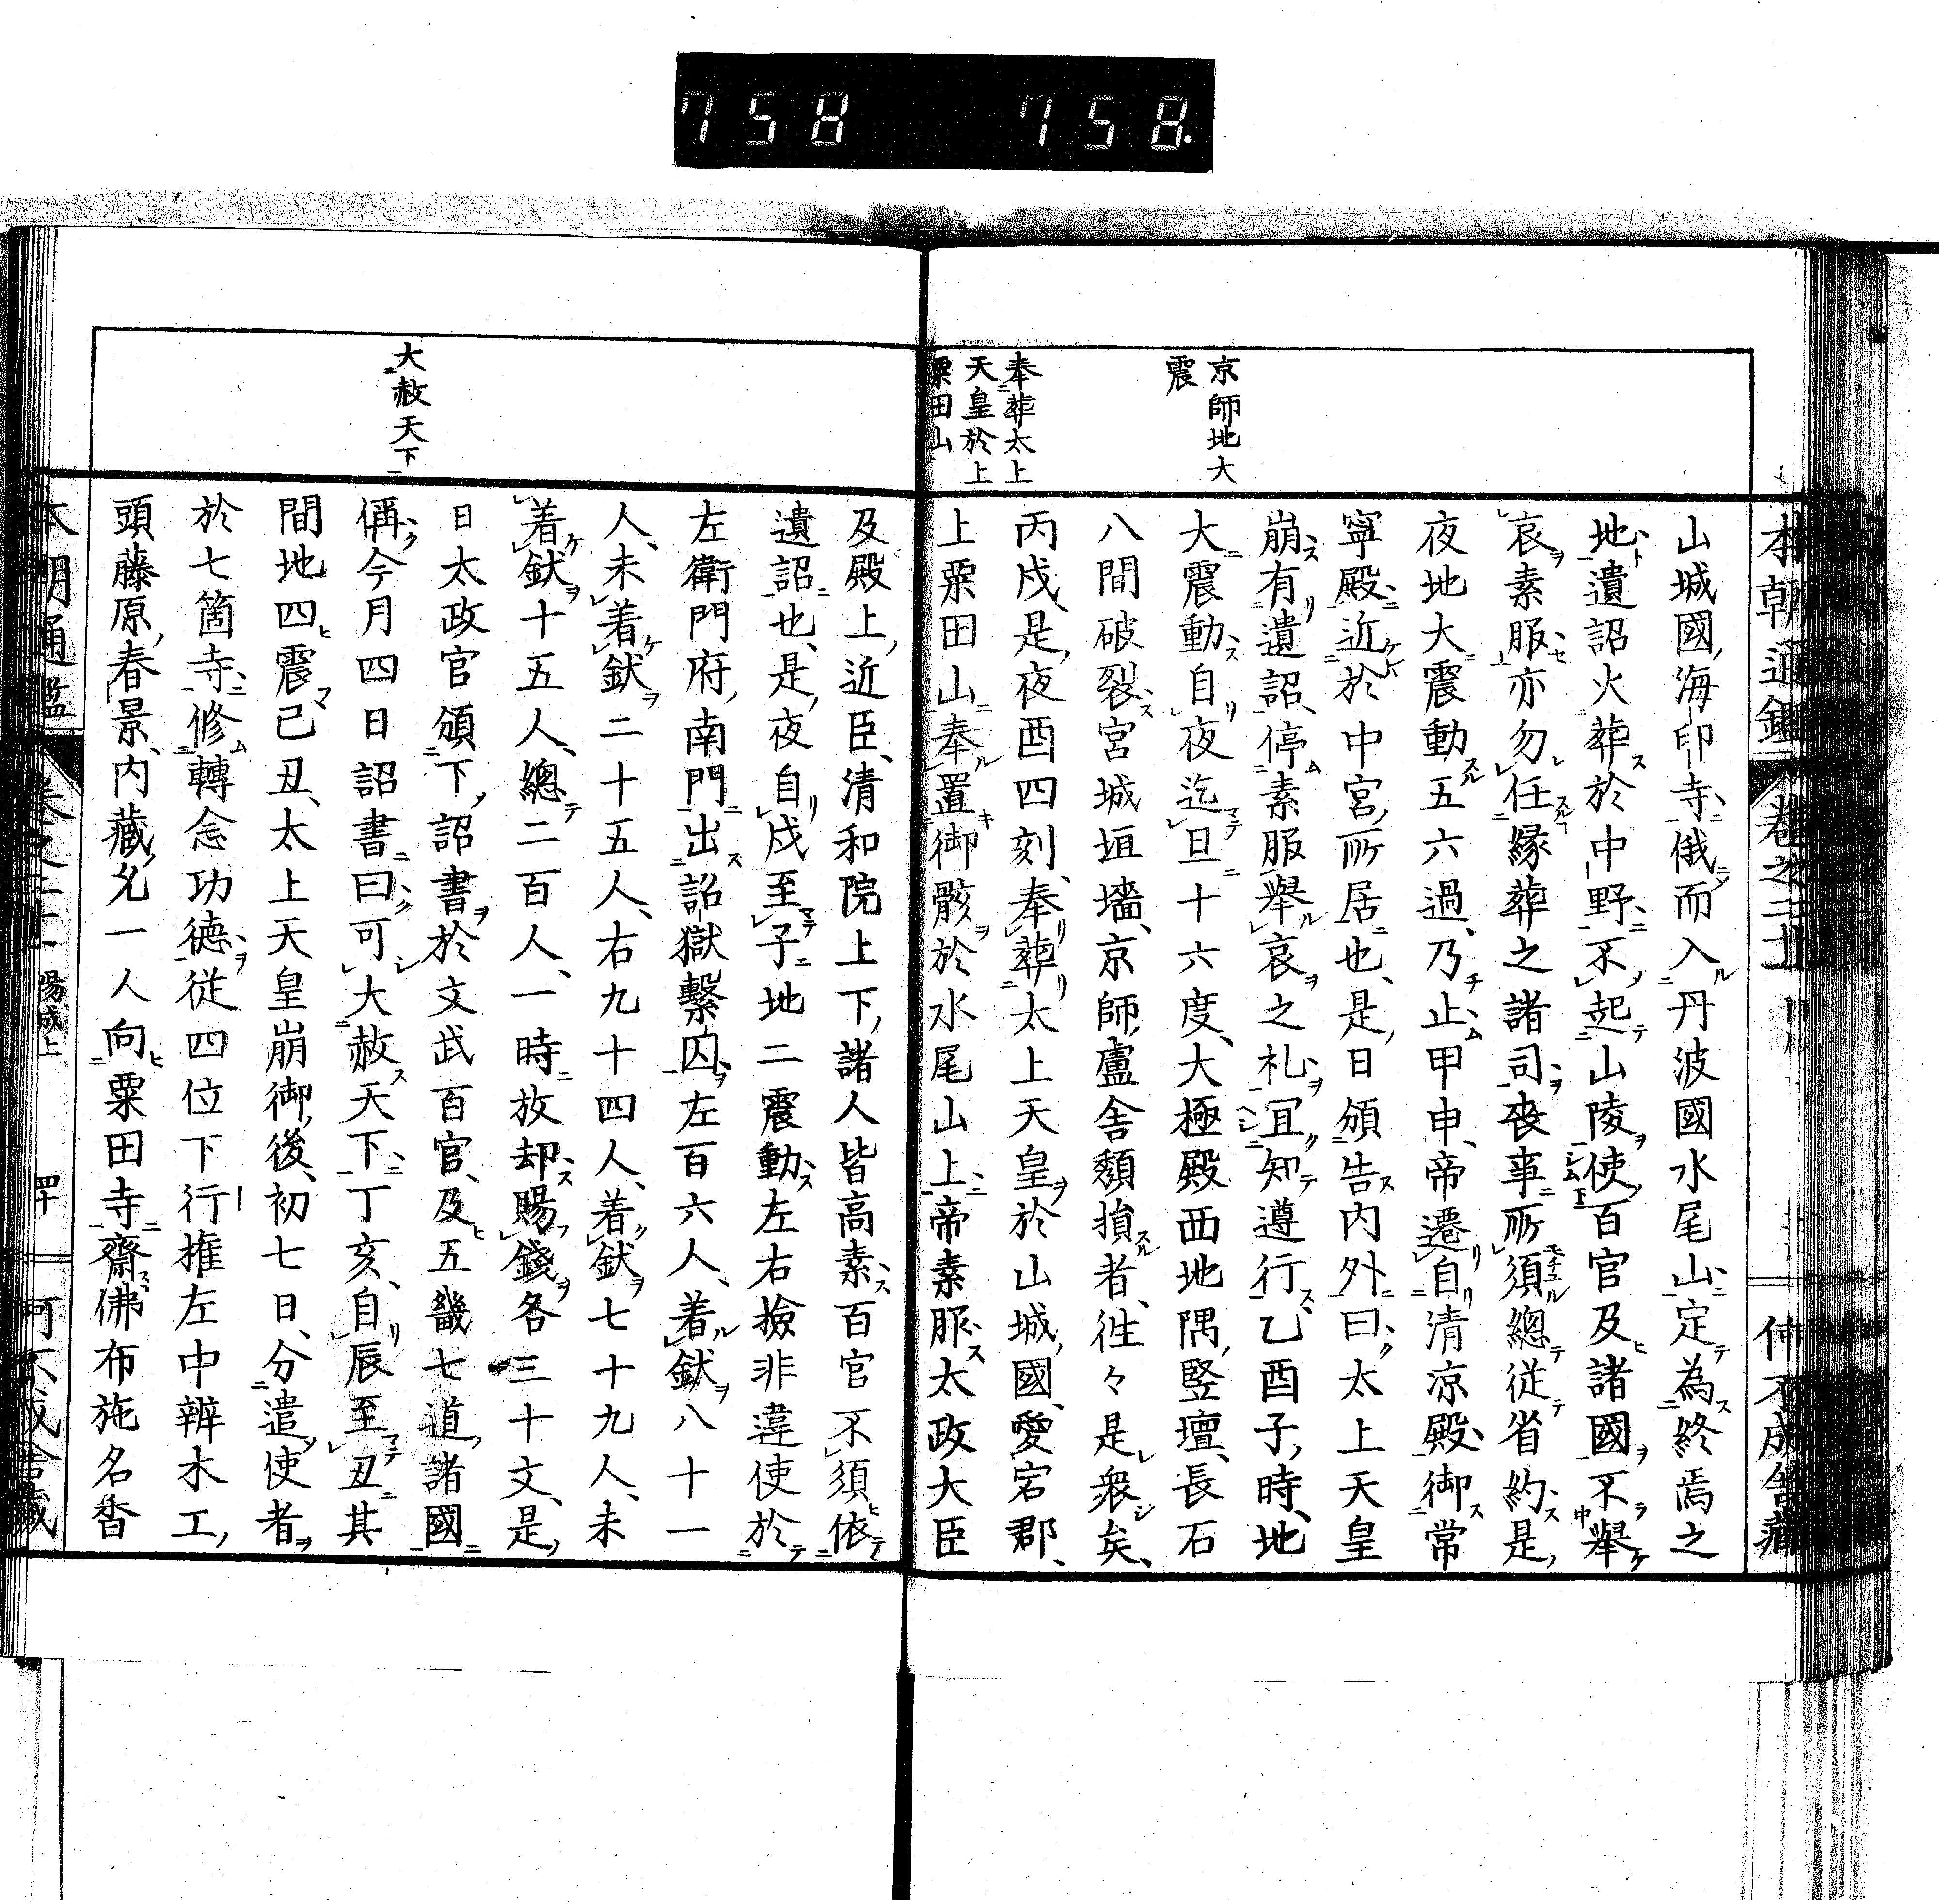 758 758.
京師地大
震
奉葬太上
天皇於上
粟田山
山城國海印寺俄而入丹波國水尾山定為終焉之
地遺詔火葬於中野不起山陵使百官及諸國不舉
哀素服亦勿任縁葬之諸司喪事所須總從省約是
夜地大震動五六過乃止甲申帝遷自清凉殿御常
寧殿近於中宮所居也是日頒告内外曰太上天皇
崩有遺詔停素服舉哀之礼冝知遵行乙酉子時地
大震動自夜迄旦十六度大極殿西地隅竪壇長石
八間破裂宮城垣墻京師盧舎頽損者徃々是衆矣
丙戌是夜酉四刻奉葬太上天皇於山城國愛宕郡
上粟田山奉置御骸於水尾山上帝素服太政大臣
大赦天下
及殿上近臣清和院上下諸人皆高素百官不須依
遺詔也是夜自戌至子地二震動左右撿非違使於
左衛門府南門出詔獄繫囚左百六人着釱八十一
人未着釱二十五人右九十四人着釱七十九人未
着釱十五人總二百人一時放却賜錢各三十文是
日太政官頒下詔書於文武百官及五畿七道諸國
偁今月四日詔書曰可大赦天下丁亥自辰至丑其
間地四震己丑太上天皇崩御後初七日分遣使者
於七箇寺修轉念功德從四位下行權左中辨木工
頭藤原春景内藏允一人向粟田寺齋佛布施名香
本朝通鑑 卷之二十 陽成上 四十